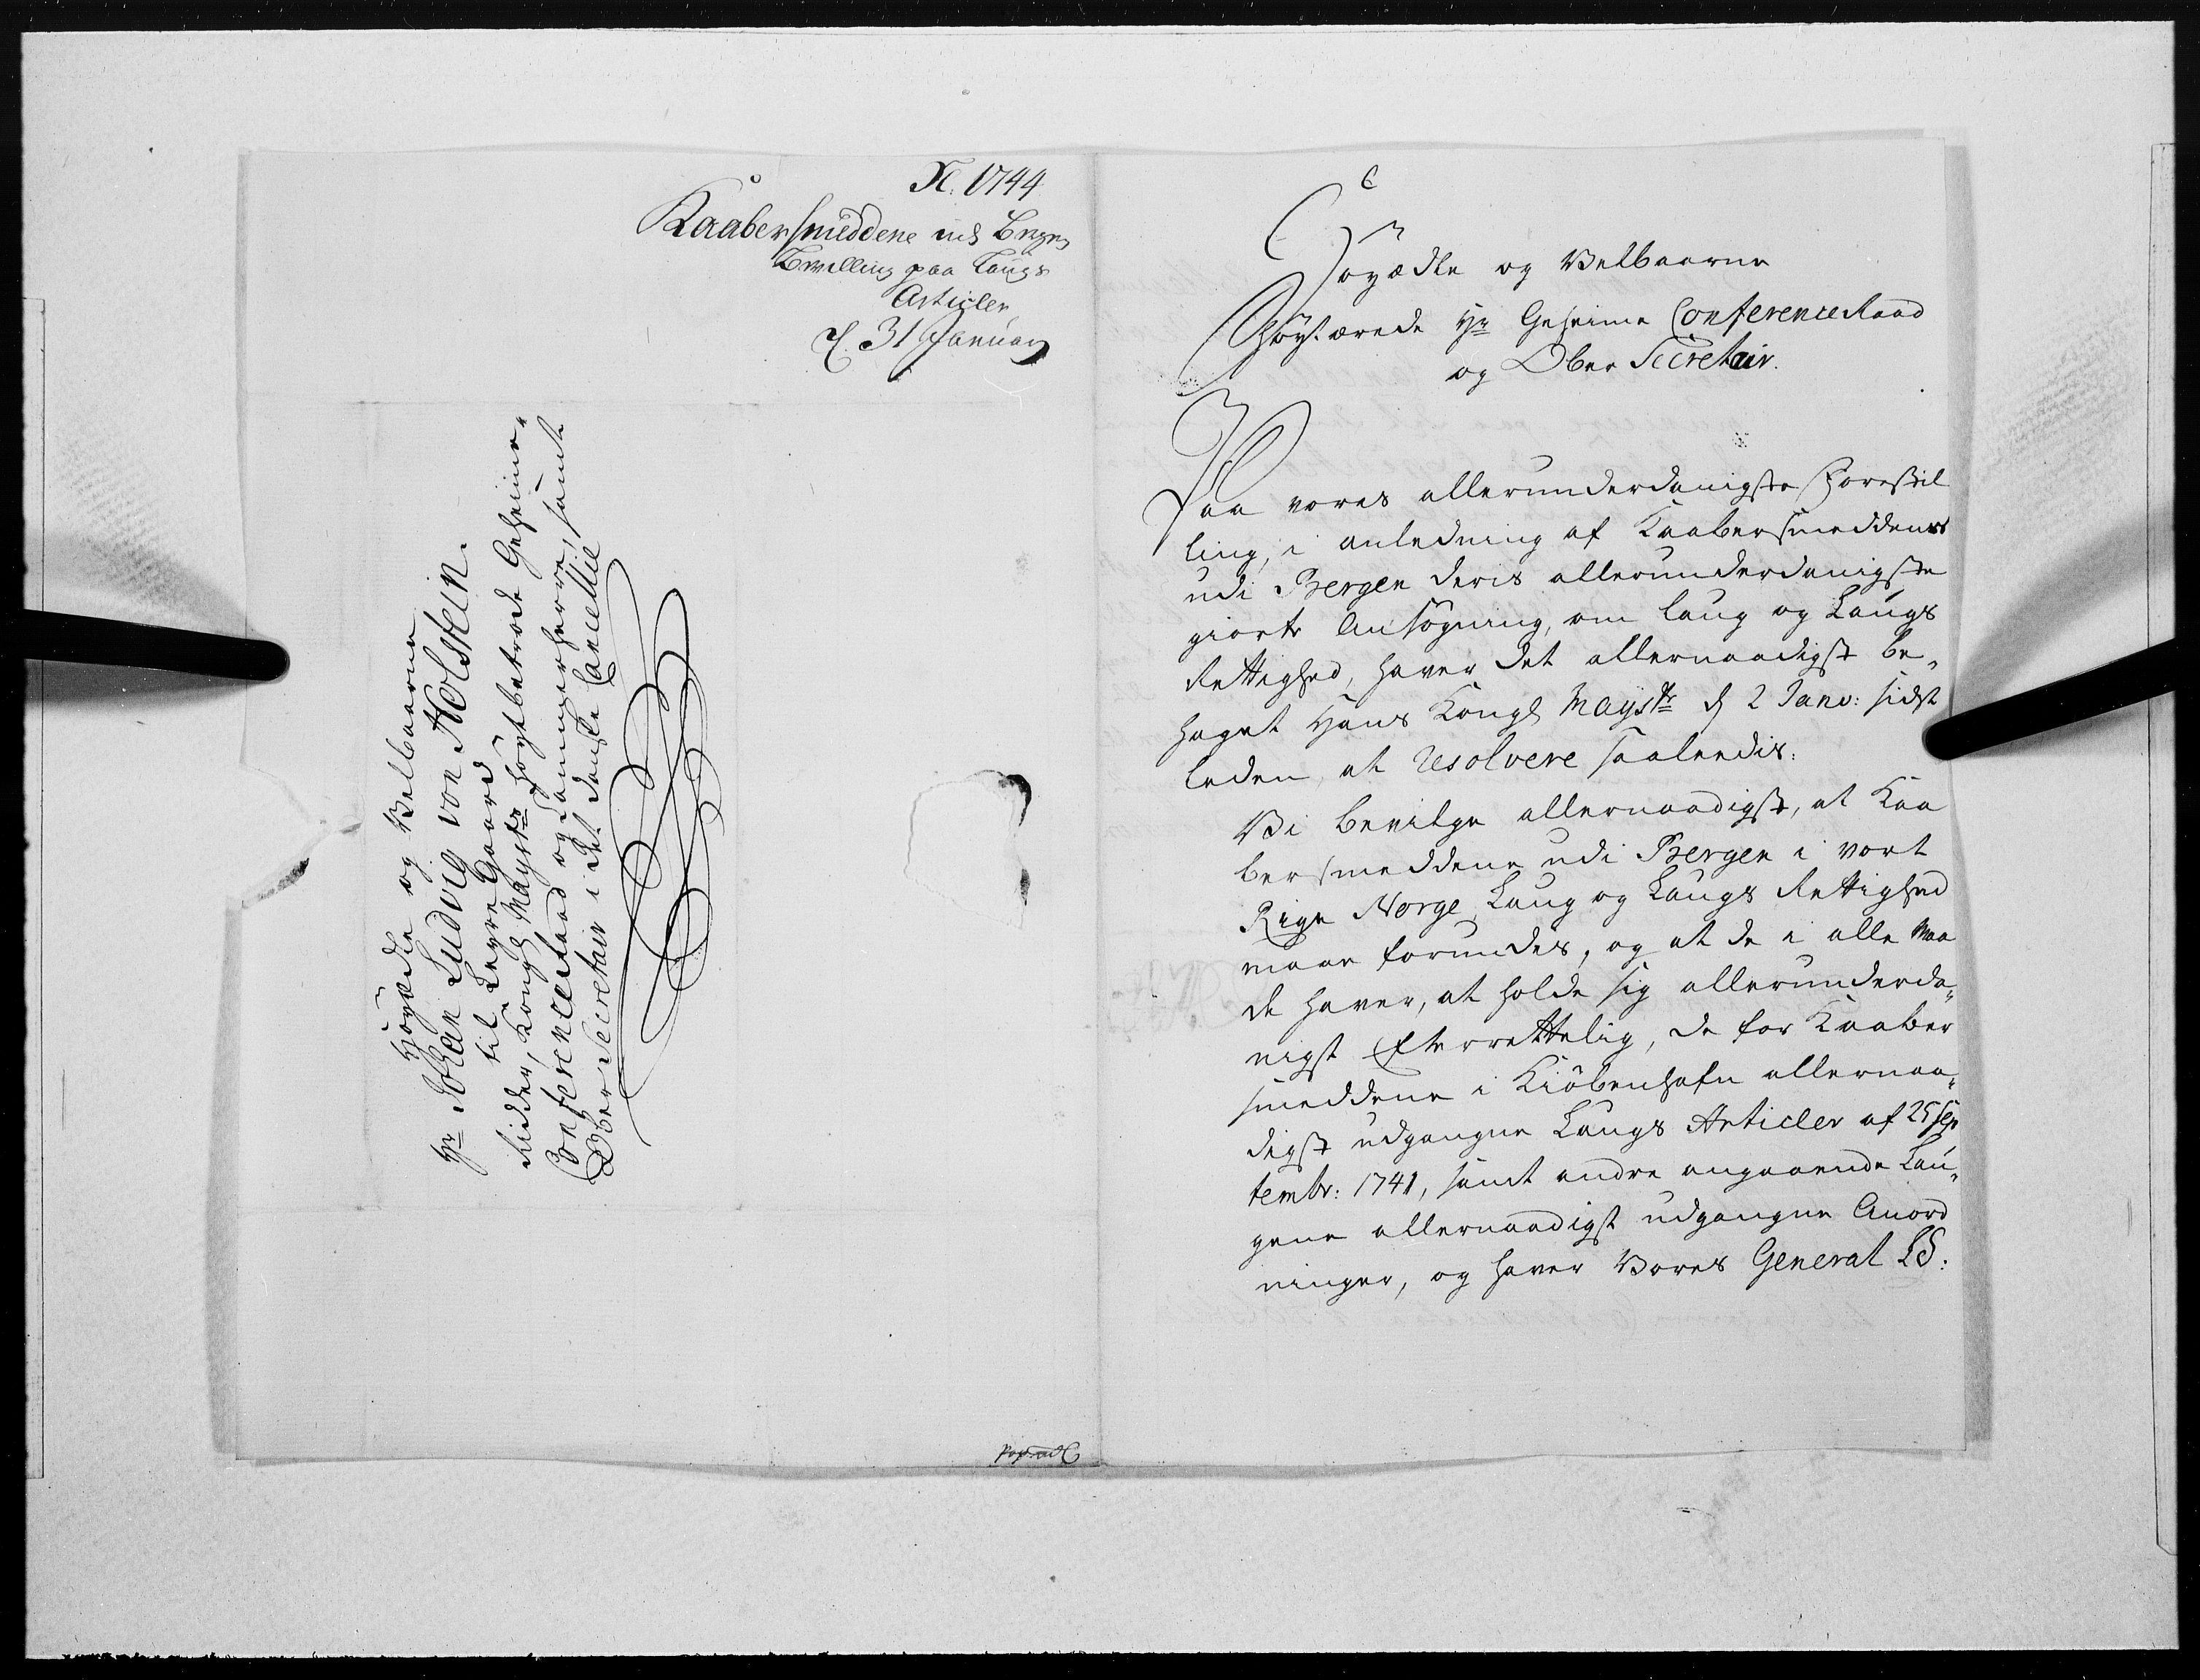 N. 1744
Kaabersmeddene udi Bergen
Bevilling paa Laugs
Articler
d. 31 Januarj
Höyædle og Velbaarne
Hr Johan Ludvig von Holstein.
til Leyre Gaard
Ridder, Kongl Maysts höytbetroede Geheime-
Conferenceraad og Cammerherre, samt
Ober Secretair i det danske Cancellie
Höyædle og Velbaarne
Höyst ærede Hr Geheime Conference Raad
og Ober Secretair.
Paa vores allerunderdanigste Forestil
ling, i anledning af Kaabersmeddenes
udi Bergen deris allerunderdanigste
giorte Ansögning, om laug og Laugs
Rettighed, haver det allernaadigst be-
haget Hans Kongl Mayst d 2 Janv: sidst
leden, at resolvere saaleedis:
Vi bevilge allernaadigst, at Kaa
bersmeddene udi Bergen i vort
Rige Norge, Laug og Laugs Rettighed
maae forundes, og at de i alle Maa
de haver, at holde sig allerunderda-
nigst Efterrettelig, de for Kaaber
smeddene i Kiöbenhafn allernaa-
digst udgangne Laugs Articler af 25 Sep
tembr: 1741, samt andre angaaende Lau-
gene allernaadigst udgangne Anord
ninger, og haver Vores General LS: